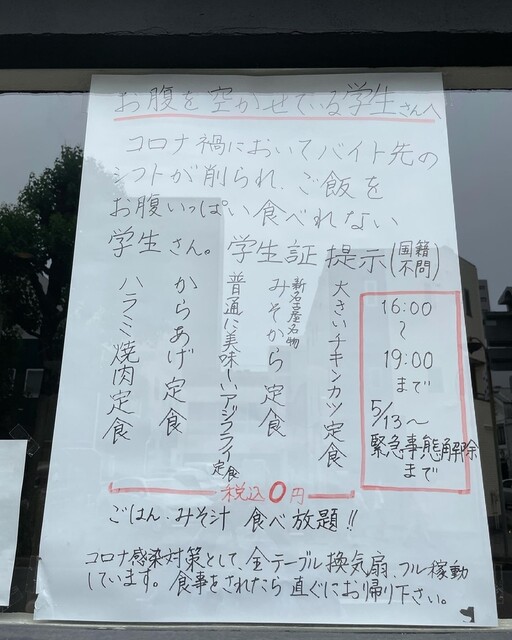 お腹を空かせている学生さんへ
コロナ禍においてバイト先の
シフトが削られ、ご飯を
お腹いっぱい食べれない
学生さん。学生証提示(国籍不問)
大きいチキンカツ定食
新名古屋名物
みそから定食
普通に美味しいアジフライ定食
からあげ定食
ハラミ焼肉定食
税込0円
16:00
〜
19:00
まで
5/13〜
緊急事態解除
まで
ごはん・みそ汁 食べ放題!!
コロナ感染対策として、全テーブル換気扇、フル稼動
しています。食事をされたら直ぐにお帰り下さい。